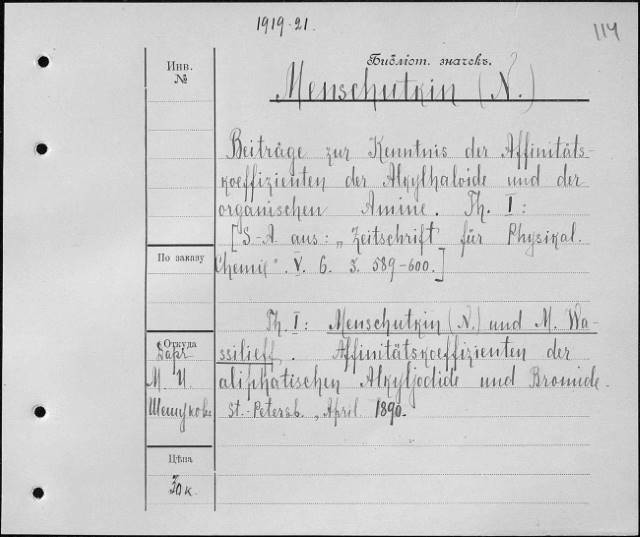 1919-21.
114
Инв.
№
Библіот. значекъ.
Menschutkin (N.)
Beiträge zur Kenntnis der Affinitäts-
koeffizienten der Alkylhaloide und der
organischen Amine. Th. I:
[S.-A. aus: „Zeitschrift für Physikal.
По заказу
Chemie". V. 6. S. 589-600.]
Th. I: Menschutkin (N.) und M. Wa-
Откуда
ssilieff. Affinitätskoeffizienten der
Даръ
М. И.
aliphatischen Alkyljodide und Bromide.
Шешуковъ
St.-Petersb., April 1890.
Цѣна
30 к.